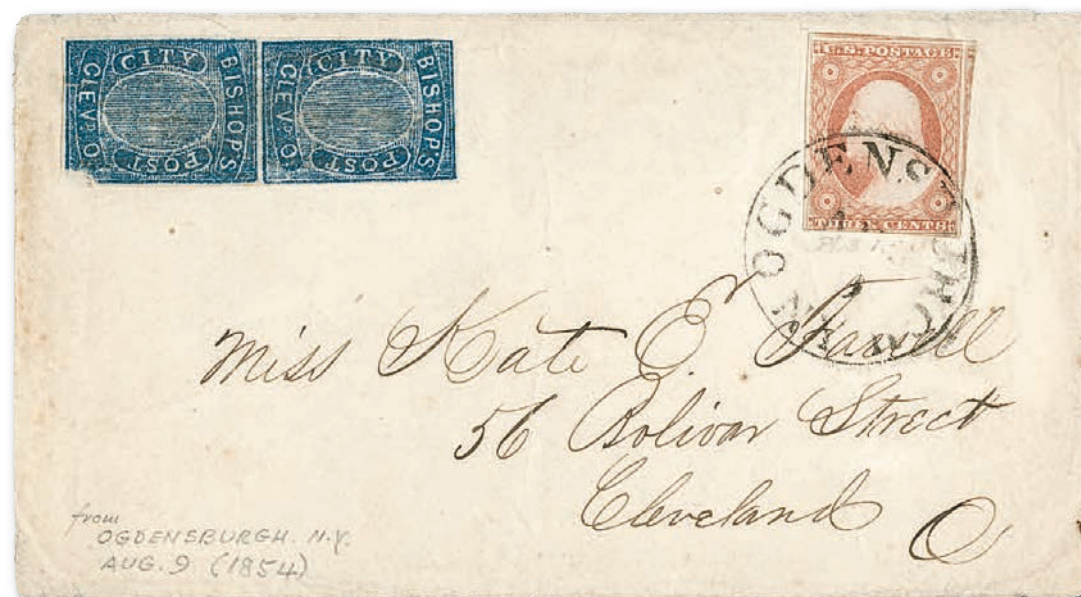 BISHOP'S CITY POST CLEV'D. O.
BISHOP'S CITY POST CLEV'D. O.
U.S. POSTAGE
THREE CENTS
OGDENSBURGH
Miss Kate E.
56 Bolivar Street
Cleveland O
from
OGDENSBURGH. N.Y.
AUG. 9 (1854)